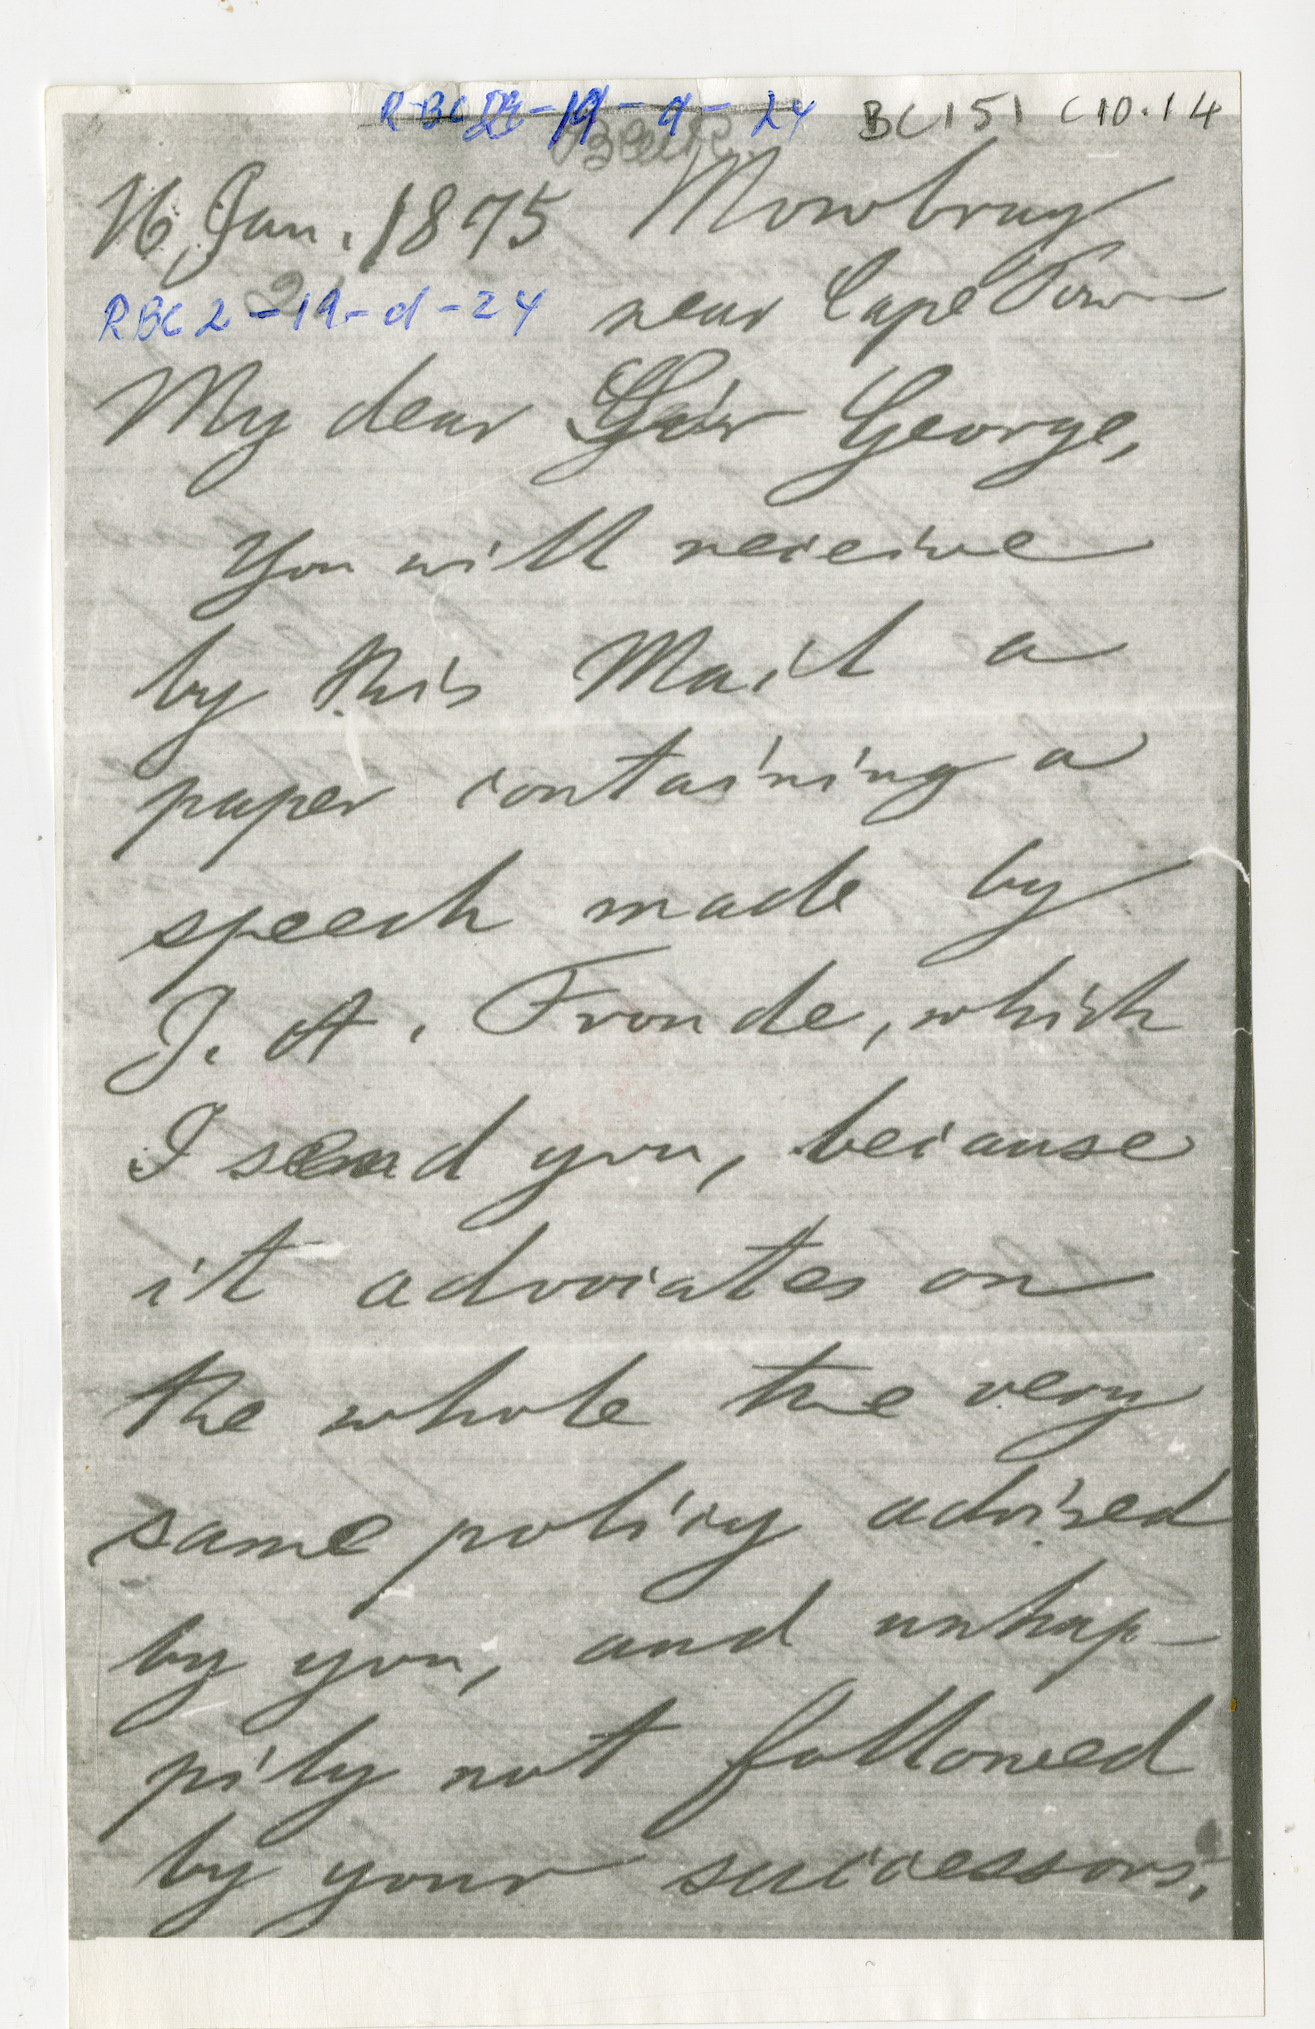 BC151 C10.14
16 Jan. 1875 Mowbray
RBC2-19-d-24 near Cape Town
My dear Sir George,
You will receive
by this Mail a
paper containing a
speech made by
J. A. Froude, which
I send you, because
it advocates on
the whole the very
same policy advised
by you, and unhap-
pily not followed
by your successors.